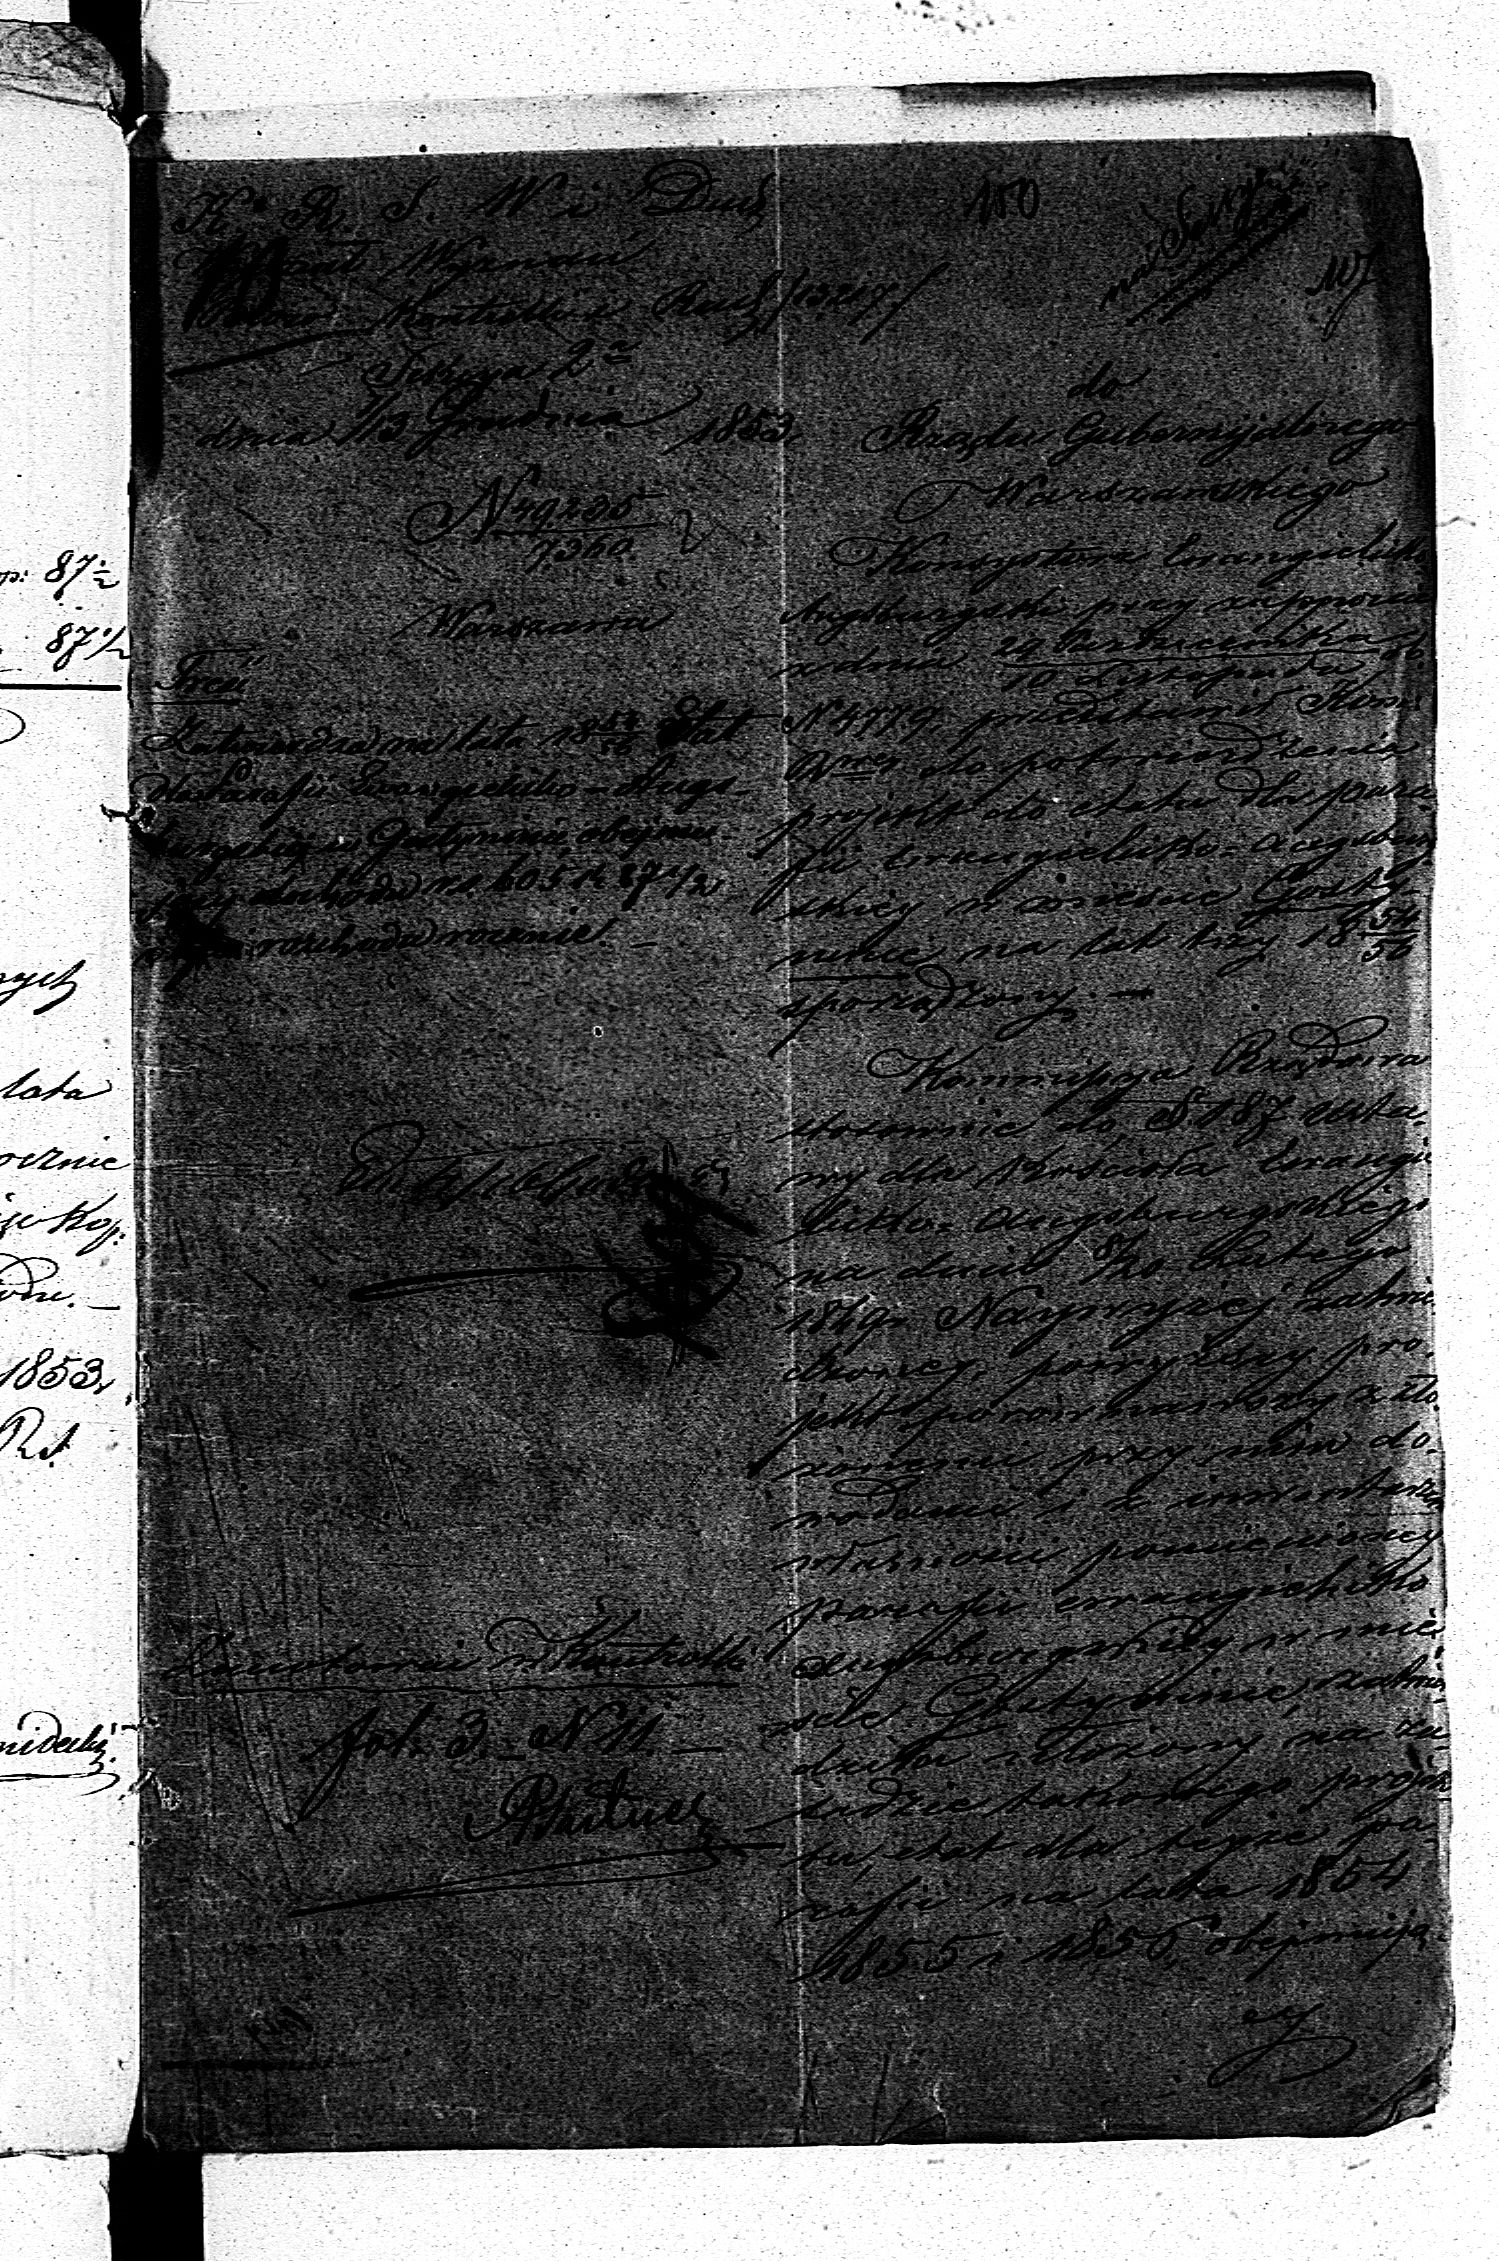 p: 87½
87½
nych
lata
rocznie
Kop:
1853
Rs.
K. R. S. W. i Duch
Wydział Wyznań
Kontrolli i Rach /13217/
Sekcya 2ª
dnia 1/13 Grudnia 1853
N 49235
7360
Warszawa
Treść
Zatwierdza na lata 18 54/56 Etat
dla Parafii Ewangielicko-Augs-
burgskiej w Gostyninie, obejmu-
jący dochodu rs. 605 k 87 1/2
rozchodu rocznie. —
Zanotowano w Kontrolli
fol. 3. N 11. —
100
107
do
Rządu Gubernijalnego
Warszawskiego
Konsystorz Ewangielicko
Augsburgski przy rapporcie
z dnia 29 Października
10 Listopada r. b.
N 4779 przedstawił Kom:
Rząd: do potwierdzenia
projekt do etatu dla para-
fii Ewangielicko-Augsburg
skiej w mieście Gosty-
ninie na lat trzy 18 54/56
sporządzony. —
Kommissya Rządowa
stosownie do § 187 Usta-
wy dla Kościoła Ewangie
licko-Augsburgskiego
na dniu 8/20 Lutego
1849 r. Najwyżej zatwier
dzonej, powyższy pro-
jekt porównawszy z zło-
żonemi przy nim do-
wodami i z inwentarzem
własności pomienionej
parafii Ewangielicko
Augsburgskiej w mie-
ście Gostyninie, zatwier
dziła ułożony na za
sadzie takowego projek
tu, etat dla tejże pa-
rafii na lata 1854
1855 i 1856, obejmują-
cy